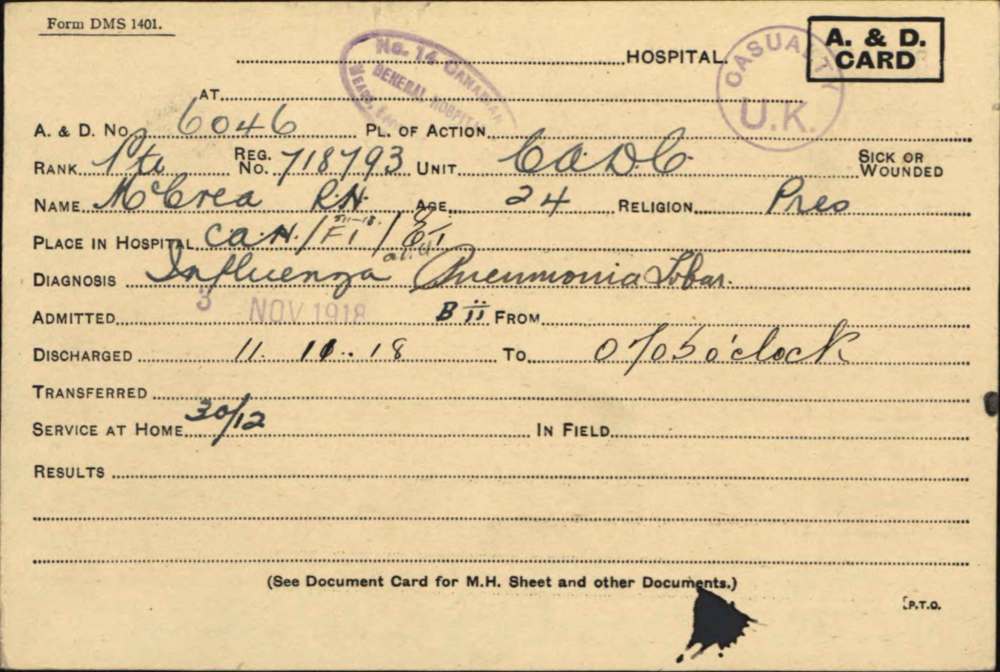 Form DMS 1401.
A. & D. CARD
No. 14 CANADIAN GENERAL HOSPITAL
HOSPITAL.
CASUALTY U.K.
AT
A. & D. No. 6046 PL. OF ACTION
RANK Pte REG. No. 718793 UNIT C.A.D.C. SICK OR WOUNDED
NAME McCrea R.H. AGE 24 RELIGION Pres
PLACE IN HOSPITAL CAN. / F1 /
DIAGNOSIS Influenza and Pneumonia Lobar.
ADMITTED 3 NOV 1918 B ii FROM
DISCHARGED 11. 11. 18 TO 0705 o'clock
TRANSFERRED
SERVICE AT HOME 30/12 IN FIELD
RESULTS
(See Document Card for M.H. Sheet and other Documents.)
[P.T.O.